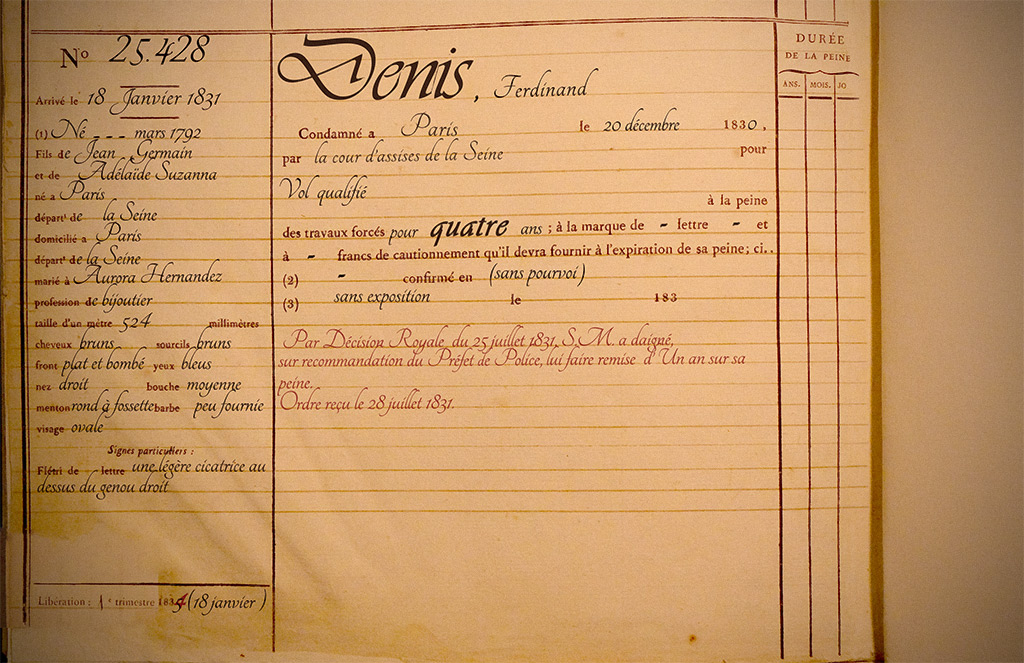 No 25.428
Arrivé le 18 Janvier 1831
(1) Né - - - mars 1792
Fils de Jean Germain
et de Adélaïde Suzanna
né a Paris
départ' de la Seine
domicilié a Paris
départ' de la Seine
marié à Aurora Hernandez
profession de bijoutier
taille d'un mètre 524 millimètres
cheveux bruns sourcils bruns
front plat et bombé yeux bleus
nez droit bouche moyenne
menton rond à fossette barbe peu fournie
visage ovale
Signes particuliers :
Flétri de lettre une légère cicatrice au
dessus du genou droit
Libération : 1 e trimestre 1834 (18 janvier )
Denis, Ferdinand
Condamné a Paris le 20 décembre 1830,
par la cour d'assises de la Seine pour
Vol qualifié
à la peine
des travaux forcés pour quatre ans ; à la marque de - lettre - et
à - francs de cautionnement qu'il devra fournir à l'expiration de sa peine; ci..
(2) - confirmé en (sans pourvoi)
(3) sans exposition le 183
Par Décision Royale du 25 juillet 1831, S.M. a daigné,
sur recommandation du Préfet de Police, lui faire remise d'Un an sur sa
peine.
Ordre reçu le 28 juillet 1831.
DURÉE
DE LA PEINE
ANS. MOIS. JO